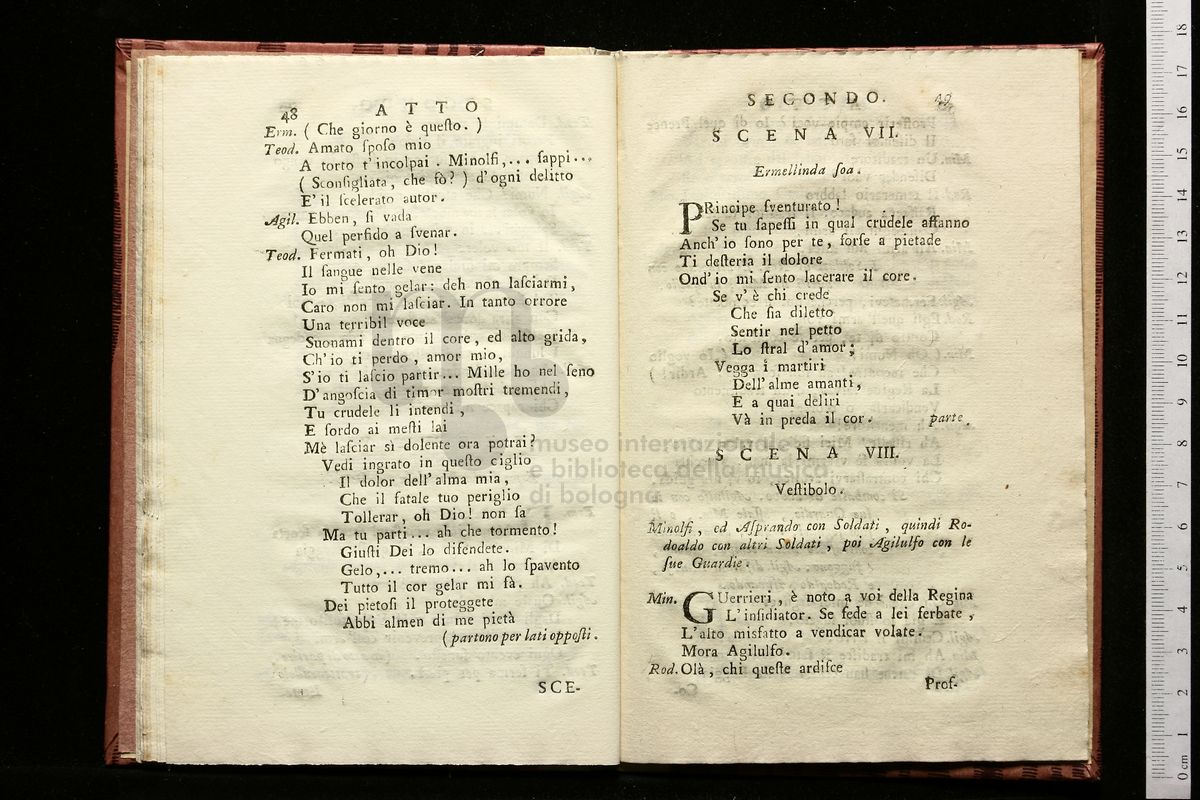 48 ATTO
Erm. ( Che giorno è queſto. )
Teod. Amato ſpoſo mio
A torto t'incolpai . Minolfi,... ſappi...
( Sconſigliata, che fò? ) d'ogni delitto
E'il ſcelerato autor.
Agil. Ebben, ſi vada
Quel perfido a ſvenar.
Teod. Fermati, oh Dio!
Il ſangue nelle vene
Io mi ſento gelar: deh non laſciarmi,
Caro non mi laſciar. In tanto orrore
Una terribil voce
Suonami dentro il core, ed alto grida,
Ch'io ti perdo, amor mio,
S'io ti laſcio partir... Mille ho nel ſeno
D'angoſcia di timor moſtri tremendi,
Tu crudele li intendi,
E ſordo ai meſti lai
Mè laſciar sì dolente ora potrai?
Vedi ingrato in queſto ciglio
Il dolor dell'alma mia,
Che il fatale tuo periglio
Tollerar, oh Dio! non ſa
Ma tu parti... ah che tormento!
Giuſti Dei lo difendete.
Gelo,... tremo... ah lo ſpavento
Tutto il cor gelar mi fà.
Dei pietoſi il proteggete
Abbi almen di me pietà
(partono per lati oppoſti.
SCE-
SECONDO. 49
SCENA VII.
Ermellinda ſoa.
PRincipe ſventurato!
Se tu ſapeſſi in qual crudele affanno
Anch'io ſono per te, forſe a pietade
Ti deſteria il dolore
Ond'io mi ſento lacerare il core.
Se v'è chi crede
Che ſia diletto
Sentir nel petto
Lo ſtral d'amor;
Vegga i martiri
Dell'alme amanti,
E a quai deliri
Và in preda il cor. parte.
SCENA VIII.
Veſtibolo.
Minolfi, ed Aſprando con Soldati, quindi Ro-
doaldo con altri Soldati, poi Agilulfo con le
ſue Guardie.
Min. GUerrieri, è noto a voi della Regina
L'inſidiator. Se fede a lei ferbate,
L'alto misfatto a vendicar volate.
Mora Agilulfo.
Rod. Olà, chi queſte ardiſce
Prof-
museo internazionale
e biblioteca della musica
di bologna
0 cm 1 2 3 4 5 6 7 8 9 10 11 12 13 14 15 16 17 18